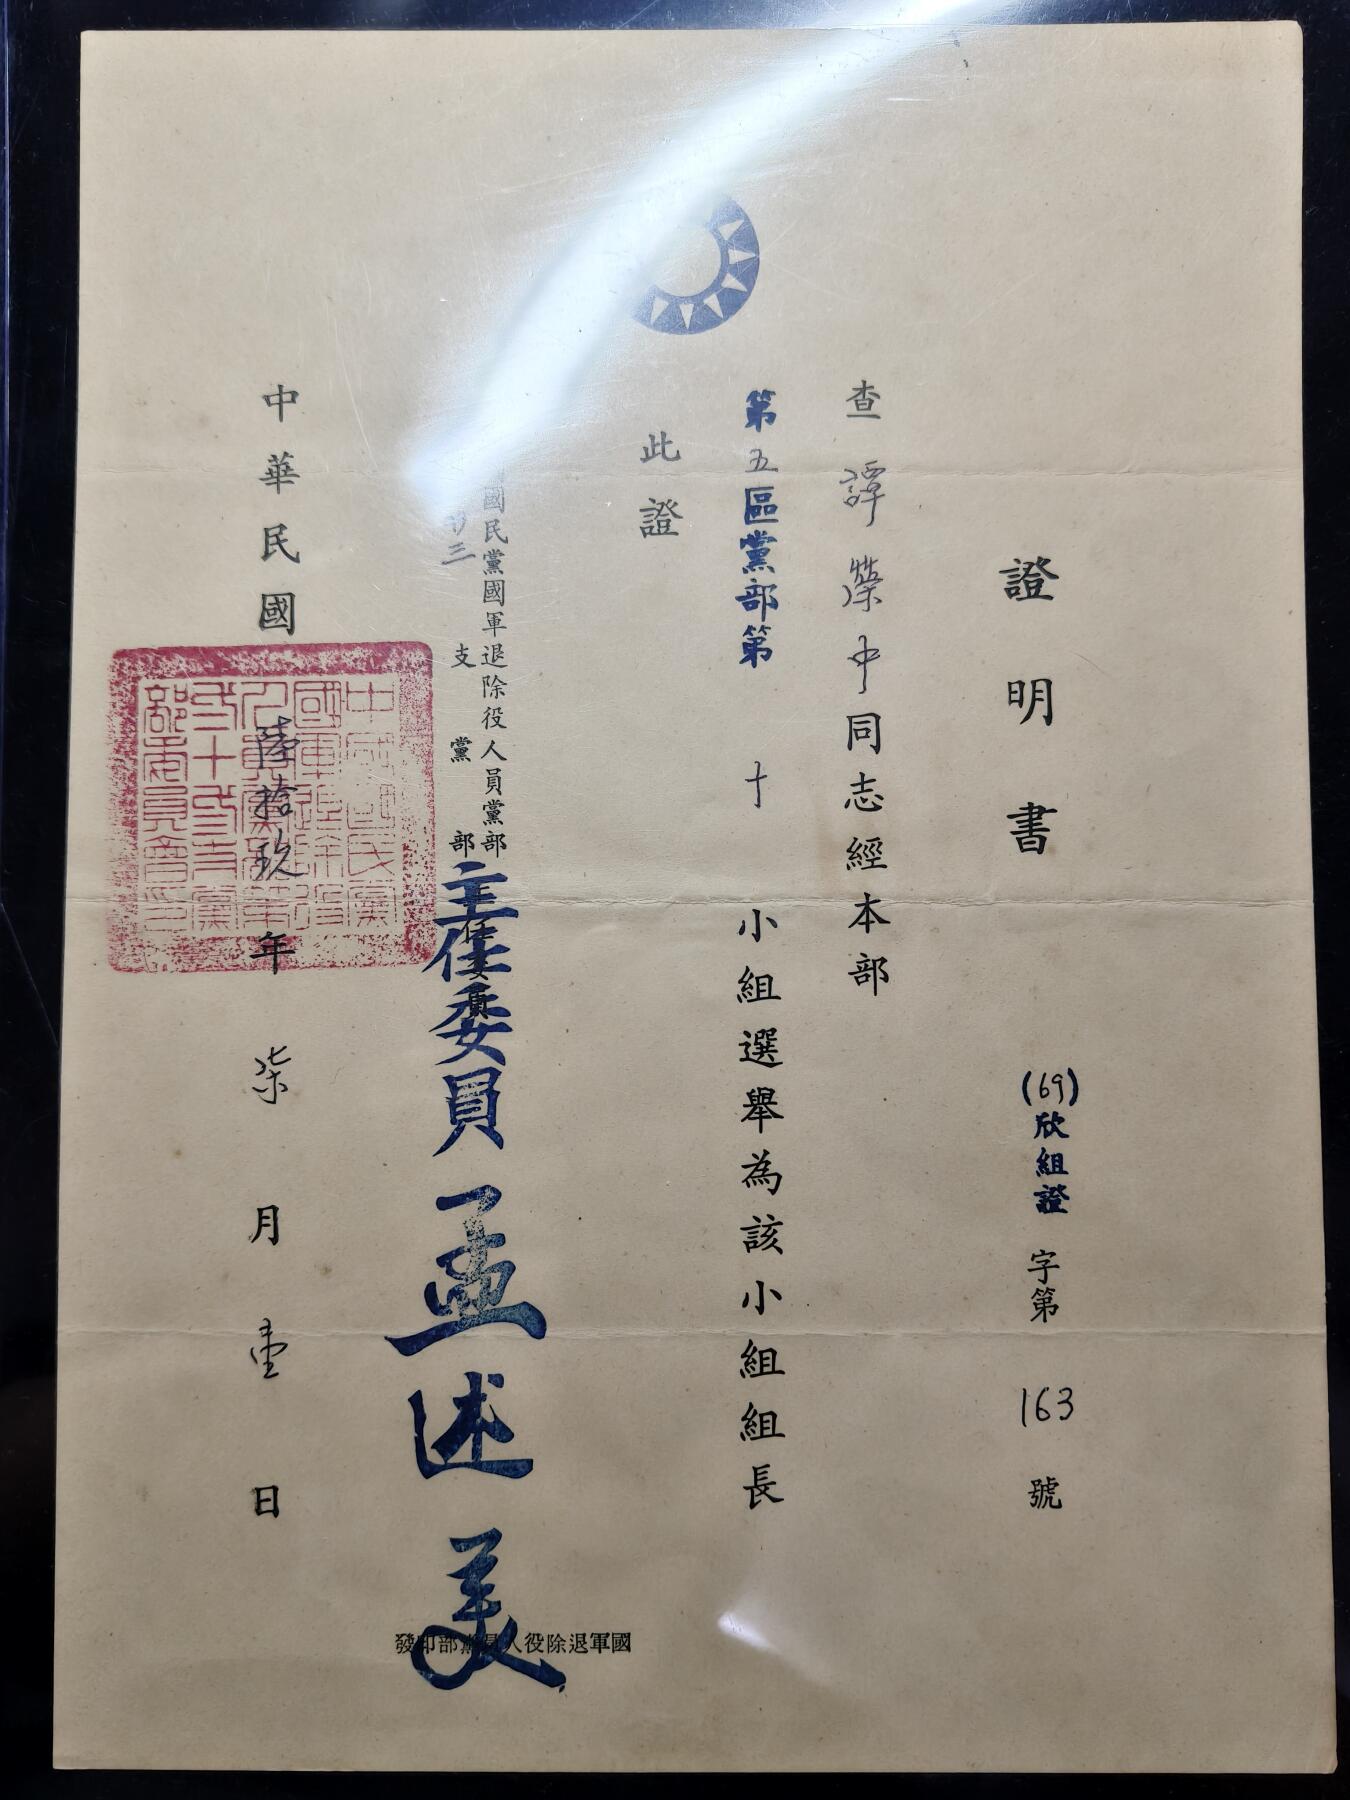 證明書
(69)欣組證字第163號
查譚榮中同志經本部
第五區黨部第十小組選舉為該小組組長
此證
國民黨國軍退除役人員黨部
廿三支黨部
主任委員
主任委員孟述美
中華民國陸拾玖年柒月壹日
中國國民黨
國軍退除役
人員黨部第
二十三支黨
部委員會印
國軍退除役人員黨部印發